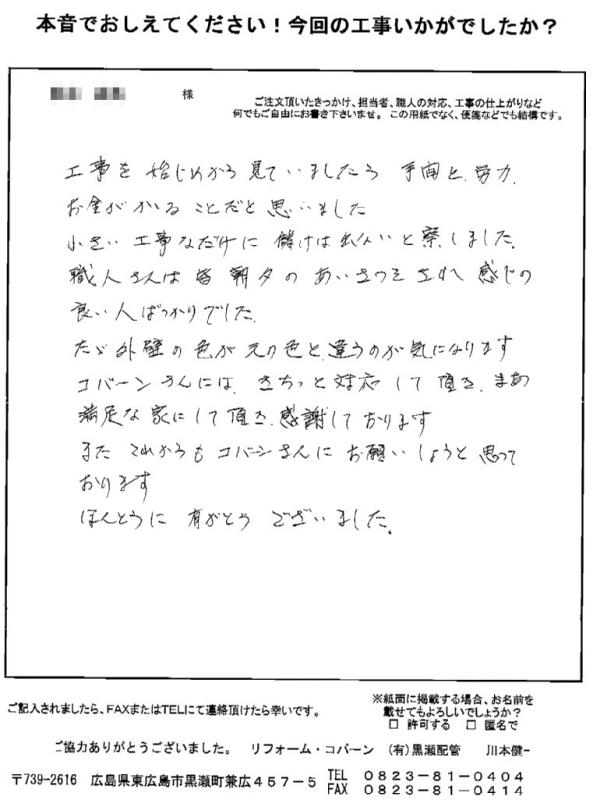 本音でおしえてください！今回の工事いかがでしたか？
様
ご注文頂いたきっかけ、担当者、職人の対応、工事の仕上がりなど
何でもご自由にお書き下さいませ。この用紙でなく、便箋などでも結構です。
工事を 始じめから 見ていましたら 手間と、労力、
お金がかかる ことだと 思いました
小さい 工事なだけに 儲けは出ないと 察しました。
職人さんは 皆 朝夕の あいさつをされ 感じの
良い人ばっかりでした。
たゞ外壁の色が 元の色と、違うのが気になります
コバーンさんには、きちっと対応して頂き、まあ
満足な家にして頂き、感謝しております
また これからも コバーンさんに お願いしようと思って
おります
ほんとうに 有がとう ございました。
ご記入されましたら、FAXまたはTELにて連絡頂けたら幸いです。
※紙面に掲載する場合、お名前を
載せてもよろしいでしょうか？
□ 許可する □ 匿名で
ご協力ありがとうございました。 リフォーム・コバーン （有）黒瀬配管 川本健一
〒739-2616 広島県東広島市黒瀬町兼広４５７－５ TEL ０８２３－８１－０４０４
FAX ０８２３－８１－０４１４